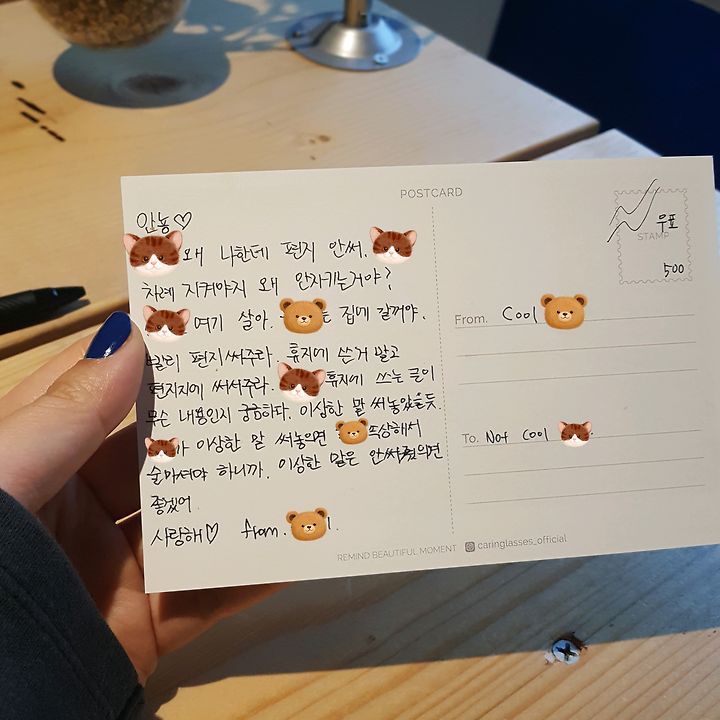 POSTCARD
안뇽♡
왜 나한테 편지 안써.
차례 지켜야지 왜 안지키는거야?
여기 살아. 는 집에 갈꺼야.
빨리 편지써주라. 휴지에 쓴거 말고
편지지에 써서주라. 휴지에 쓰는 글이
무슨 내용인지 궁금하다. 이상한 말 써놓았을듯.
가 이상한 말 써놓으면 속상해서
술마셔야 하니까. 이상한 말은 안써줬으면
좋겠어.
사랑해♡ from.
우표
STAMP
500
From. Cool
To. Not Cool
REMIND BEAUTIFUL MOMENT caringlasses_official